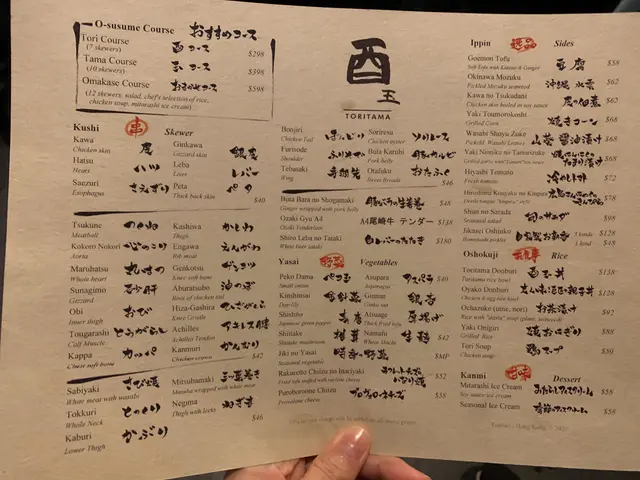 O-susume Course おすすめコース
Tori Course 酉コース
(7 skewers) $298
Tama Course 玉コース
(10 skewers) $398
Omakase Course おまかせコース
(12 skewers, salad, chef's selection of rice, $598
chicken soup, mitarashi ice cream)
Kushi 串 Skewer
Kawa
Chicken skin
Hatsu ハツ
Heart
Saezuri さえずり
Esophagus
Ginkawa 銀皮
Gizzard skin
Leba レバー
Liver
Peta ペタ
Thick back skin
$40
Tsukune つくね
Meatball
Kokoro Nokori 心のこり
Aorta
Maruhatsu 丸はつ
Whole heart
Sunagimo 砂肝
Gizzard
Obi おび
Inner thigh
Tougarashi とうがらし
Calf Muscle
Kappa カッパ
Chest soft bone
Kashiwa かしわ
Thigh
Engawa えんがわ
Rib meat
Genkotsu ゲンコツ
Knee soft bone
Aburatsubo 油つぼ
Root of chicken tail
Hiza-Gashira ひざがしら
Knee Gristle
Achilles アキレス腱
Achilles Tendon
Kanmuri かんむり
Chicken crown
$42
Sabiyaki さび焼き
White meat with wasabi
Tokkuri とっくり
Whole Neck
Kaburi かぶり
Lower Thigh
Mitsubamaki 三つ葉巻き
Mitsuba wrapped with white meat
Negima ねぎま
Thigh with leeks
$46
酉
玉
TORITAMA
Bonjiri ぼんじり
Chicken Tail
Furisode ふりそでや
Shoulder
Tebasaki 手羽先
Wing
Soriresu ソリレース
Chicken oyster
Buta Karubi 豚カルビ
Pork belly
Otafuku おたふく
Sweet Breads
$46
Buta Bara no Shogamaki 豚バラの生姜巻 $48
Ginger wrapped with pork belly
Ozaki Gyu A4 A4尾崎牛 テンダー $138
Ozaki Tenderloin
Shiro Leba no Tataki 白レバーのたたき $180
White liver tataki
Yasai 野菜 Vegetables
Peko Dama ペコ玉
Small onion
Kinshinsai 金針菜
Day-lily
Shishito
Japanese green pepper
Shiitake 椎茸
Shiitake mushroom
Jiki no Yasai 時季の野菜 $MP
Seasonal vegetable
Asupara アスパラ $40
Asparagus
Ginnan 銀杏
Ginkgo nuts
Atsuage 厚揚げ
Fried tofu
Namafu 生麩 $42
Wheat Mochi
Rakuretto Chiizu no Inaciyaki $52
Fried tofu stuffed with raclette cheese
Puroborone Chiizu プロヴォローネチーズ $58
Provolone cheese
Ippin 逸品 Sides
Goemon Tofu 豆腐 $58
Soft Tofu with Konbu & Ginger
Okinawa Mozuku 沖縄水雲 $62
Pickled Mozuku seaweed
Kawa no Tsukudani 皮の佃煮 $62
Chicken skin boiled in soy sauce
Yaki Toumorokoshi 焼きコーン $68
Grilled Corn
Wasabi Shoyu Zuke 山葵醤油漬け $68
Pickled Wasabi Leaves
Yaki Ninniku no Tamarizuke $68
Hiyashi Tomato 冷やしトマト $72
Fresh tomato
$78
Shun no Sarada 旬のサラダ $98
Seasonal salad
Jikasei Oshinko 自家製お新香 5 kinds $128
Homemade pickles 1 kind $48
Oshokuji お食事 Rice
Toritama Donburi 酉玉丼 $138
Oyako Donburi $128
Chicken & egg rice bowl
Ochazuke (ume, nori) お茶漬け $92
Yaki Onigiri 焼おにぎり $88
Grilled Rice
Tori Soup 鶏スープ $59
Chicken soup
Kanmi 甘味 Dessert
Mitarashi Ice Cream みたらしアイスクリーム $58
Soy sauce ice cream
Seasonal Ice Cream 季節のアイスクリーム $58